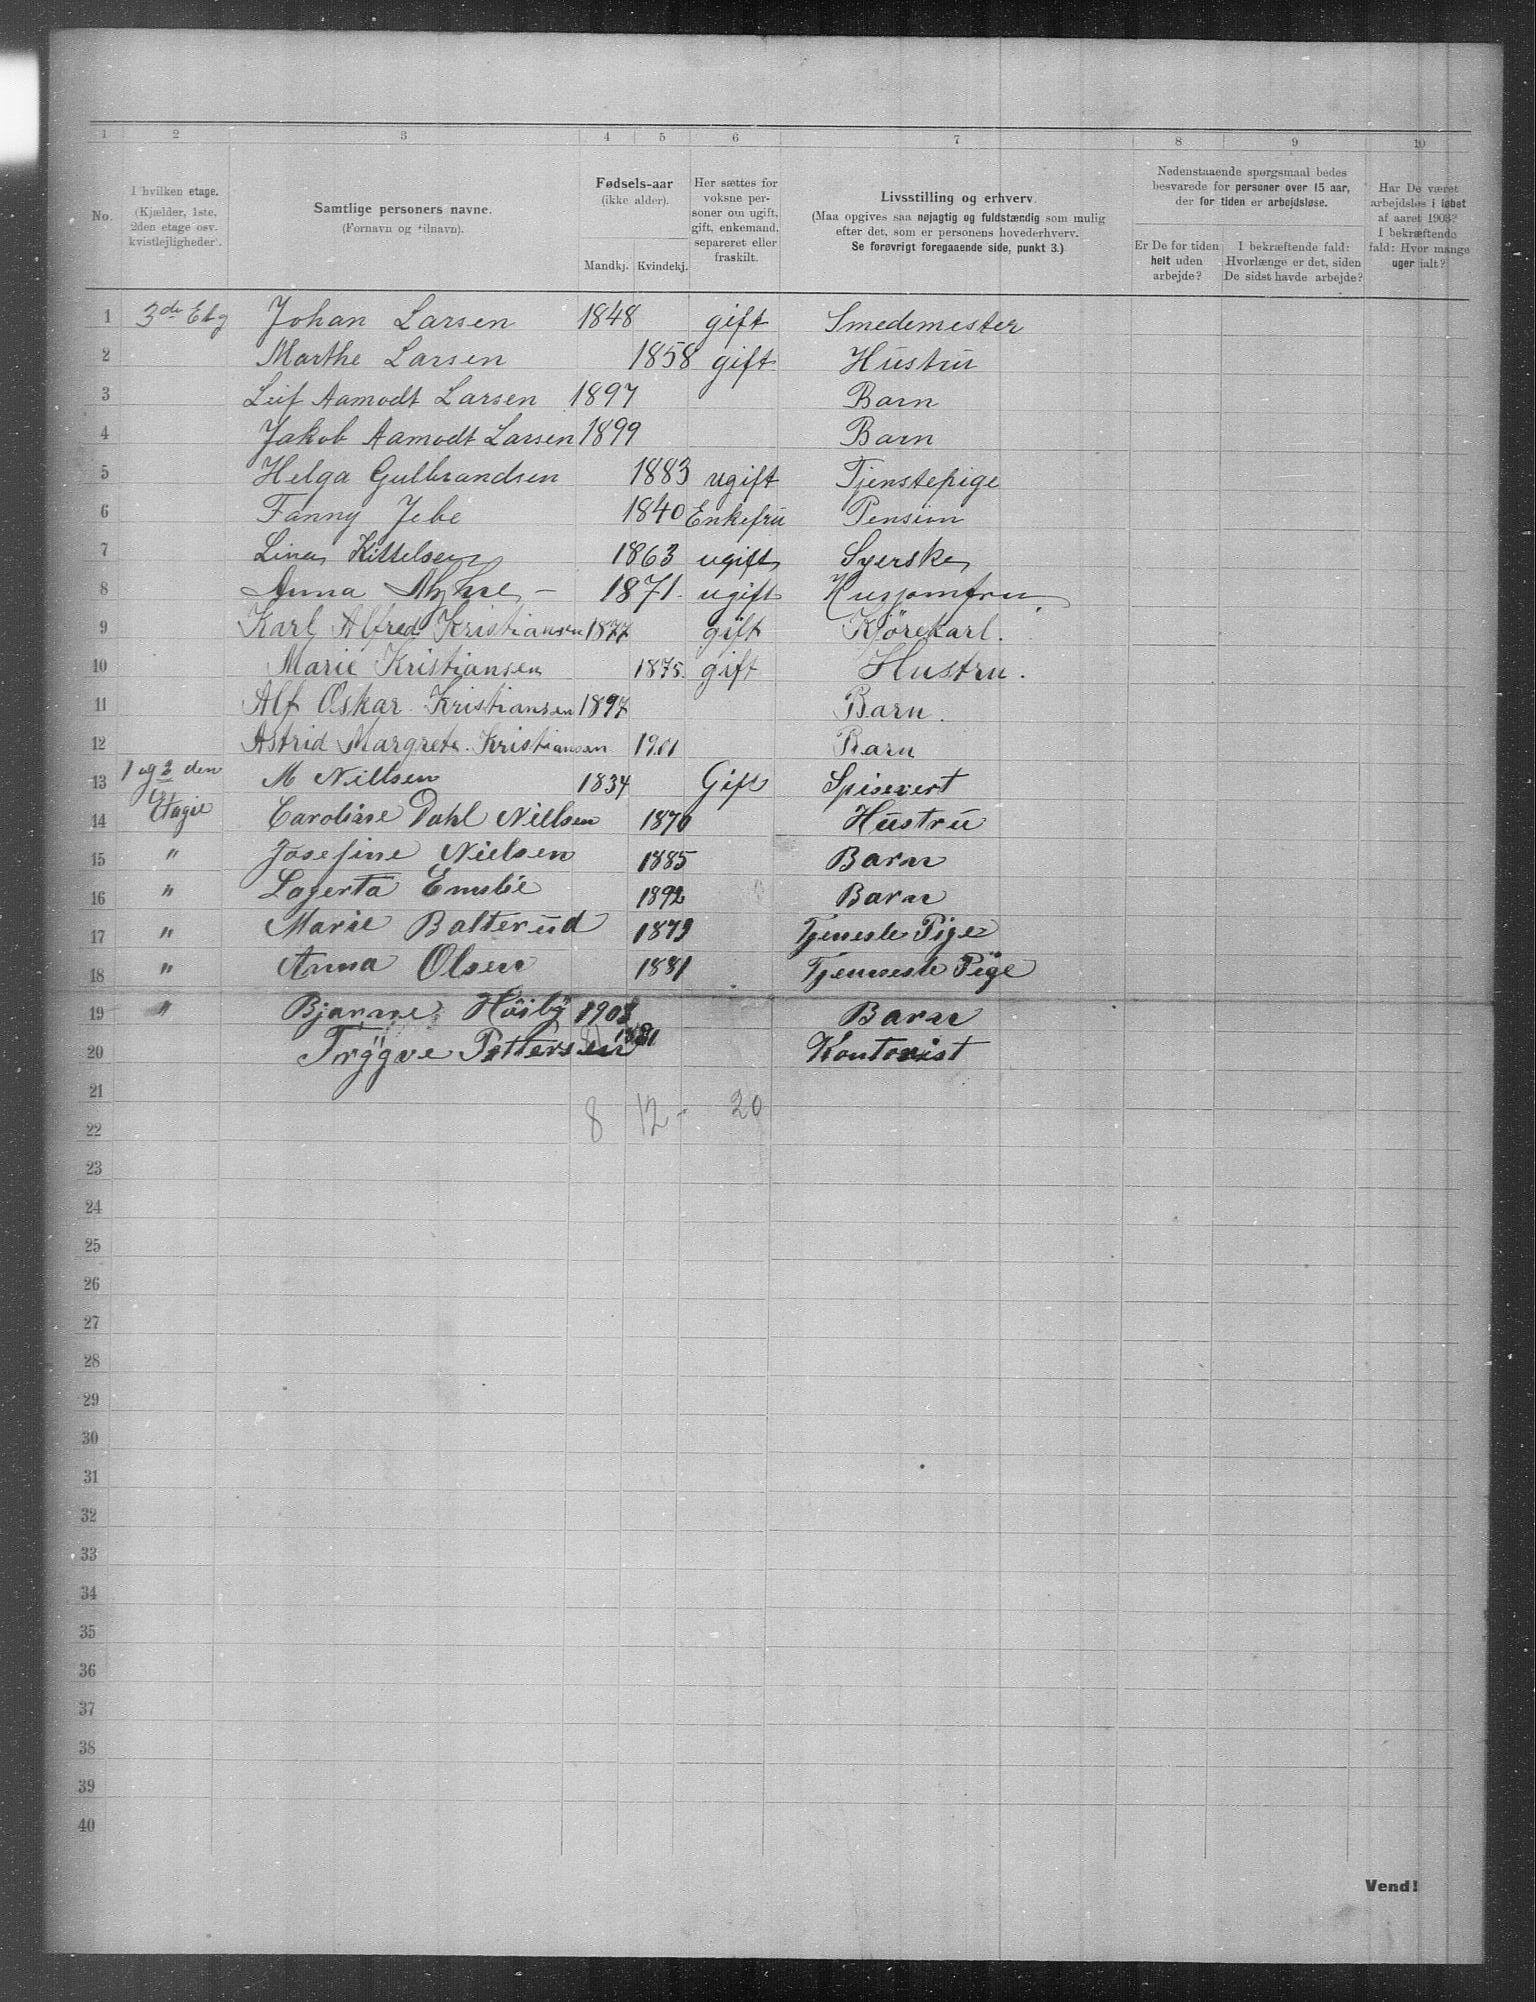 1 2 3 4 5 6 7 8 9 10
No.
I hvilken etage.
(Kjælder, 1ste,
2den etage osv.
kvistlejligheder).
Samtlige personers navne.
(Fornavn og tilnavn).
Fødsels-aar
(ikke alder).
Mandkj. Kvindekj.
Her sættes for
voksne per-
soner om ugift,
gift, enkemand,
separeret eller
fraskilt.
Livsstilling og erhverv.
(Maa opgives saa nøjagtig og fuldstændig som mulig
efter det, som er personens hovederhverv.
Se forøvrigt foregaaende side, punkt 3.)
Nedenstaaende spørgsmaal bedes
besvarede for personer over 15 aar,
der for tiden er arbejdsløse.
Er De for tiden
helt uden
arbejde?
I bekræftende fald:
Hvorlænge er det, siden
De sidst havde arbejde?
Har De været
arbejdsløs i løbet
af aaret 1903?
I bekræftende
fald: Hvor mange
uger ialt?
1 3de Etg Johan Larsen 1848 gift Smedemester
2 Marthe Larsen 1858 gift Hustru
3 Leif Aamodt Larsen 1897 Barn
4 Jakob Aamodt Larsen 1899 Barn
5 Helga Gulbrandsen 1883 ugift Tjenstepige
6 Fanny Jebe 1840 Enkefru Pension
7 Lina Kittelsen 1863 ugift Syerske
8 Anna 1871. ugift Husjomfru
9 Karl Alfred Kristiansen 1877 gift Kjørekarl.
10 Marie Kristiansen 1875. gift Hustru.
11 Alf Oskar Kristiansen 1897 Barn.
12 Astrid Margrete Kristiansen 1901 Barn
13 1 og 2 den M Nillsen 1834 Gift Spisevert
14 Etagie Caroline Dahl Nillsen 1870 Hustru
15 " Josefine Nielsen 1885 Barn
16 " Lagerta Emilie 1892 Barn
17 " Marie Balterud 1879 Tjeneste Pige
18 " Anna Olsen 1881 Tjenneste Pige
19 " Bjarne Höiby 1903 Barn
20 Tryggve Pettersen 1881 Kontorist
21
8 12 - 20
22
23
24
25
26
27
28
29
30
31
32
33
34
35
36
37
38
39
40
Vend!